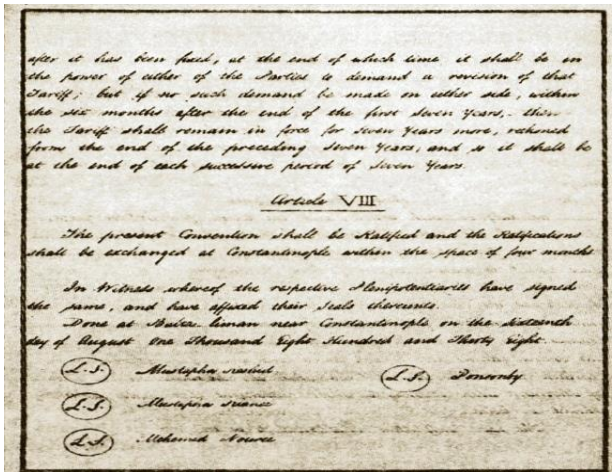 after it has been fixed, at the end of which time, it shall be in
the power of either of the Parties to demand a revision of that
Tariff; but if no such demand be made on either side, within
the six months after the end of the first Seven Years, then
the Tariff shall remain in force for Seven Years more, reckoned
from the end of the preceding Seven Years, and so it shall be
at the end of each successive period of Seven Years.
Article VIII
The present Convention shall be Ratified and the Ratifications
shall be exchanged at Constantinople within the space of four months
In Witness whereof the respective Plenipotentiaries have signed
the same, and have affixed their Seals thereunto.
Done at Balta Liman near Constantinople on the sixteenth
day of August One Thousand Eight Hundred and Thirty Eight
L.S. Mustapha Reshid L.S. Ponsonby
L.S. Mustapha
L.S. Mehemed Nouree